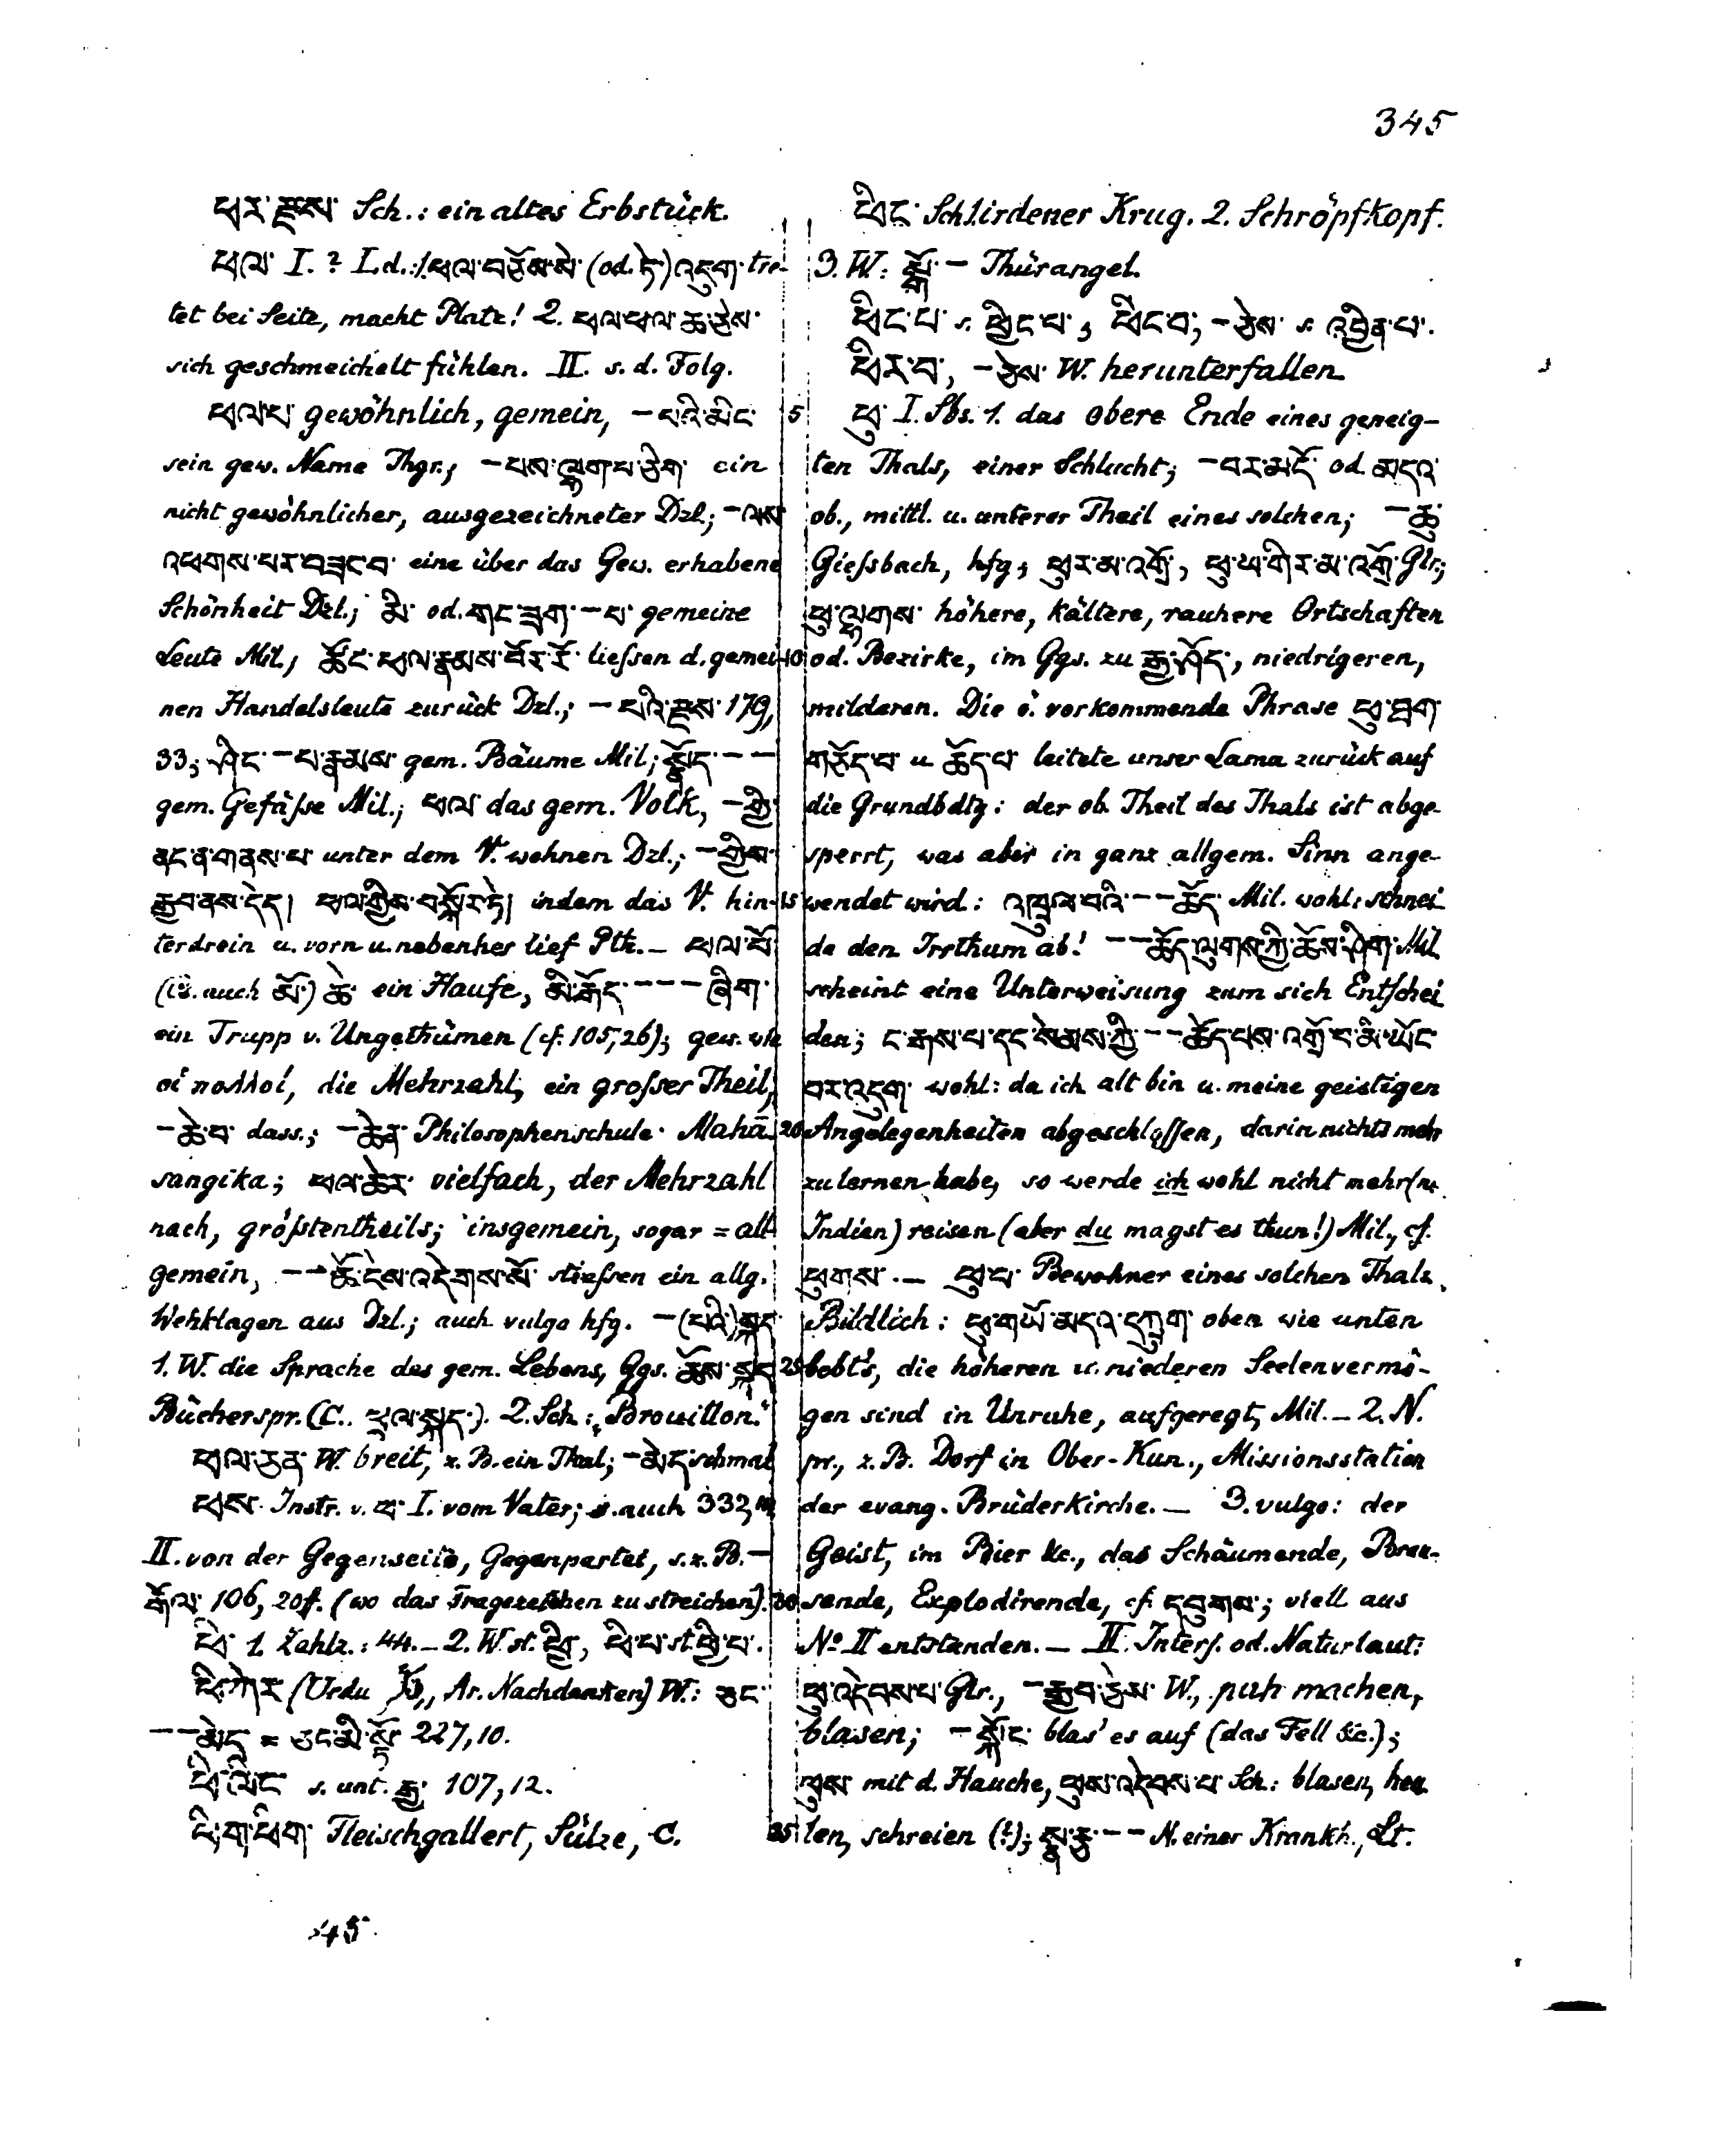 345
ཕར་རྫས་ Sch.: ein altes Erbstück.
ཕལ་ I. ? Ld.: 1. ཕལ་བཅོས་སེ་ (od. ཏེ) འདུག་ tre-
tet bei Seite, macht Platz! 2. ཕལ་ཕལ་ཆ་ཅེས་
sich geschmeichelt fühlen. II. s. d. Folg.
ཕལ་པ་ gewöhnlich, gemein, – པའི་མིང་
sein gew. Name Thgr.; – པས་ལྷག་པ་ཅིག་ ein
nicht gewöhnlicher, ausgezeichneter Dzl.; – ལས་
འཕགས་པར་བཟང་བ་ eine über das Gew. erhabene
Schönheit Dzl.; མི་ od. གང་ཟག་ – པ་ gemeine
Leute Mil.; ཚོང་ཕལ་རྣམས་བོར་རོ་ liessen d. gemei-
nen Handelsleute zurück Dzl.; – པའི་རྫས་ 179,
33; ཤིང་ – པ་རྣམས་ gem. Bäume Mil.; སྣོད་ – –
gem. Gefässe Mil.; ཕལ་ das gem. Volk, – གྱི་
ནང་ན་གནས་པ་ unter dem V. wohnen Dzl.; – གྱིས་
རྒྱབ་ནས་དེད། ཕལ་གྱིས་བསྐོར་ཏེ། indem das V. hin-
terdrein u. vorn u. nebenher lief Pth. – ཕལ་པོ་
(is. auch མོ་) ཆེ་ ein Haufe, མི་རྒོད་ – – – ཞིག་
ein Trupp v. Ungethümen (cf. 105,26); gew. wie
οἱ πολλοί, die Mehrzahl, ein grosser Theil,
– ཆེ་བ་ dass.; – ཆེན་ Philosophenschule Mahā-
sangika; ཕལ་ཆེར་ vielfach, der Mehrzahl
nach, grösstentheils; insgemein, sogar = all-
gemein, – – ཆོ་ངེས་འདེབས་སོ་ stiessen ein allg.
Wehklagen aus Dzl.; auch vulgo hfg. – (པའི་) སྐད་
1. W. die Sprache des gem. Lebens, Ggs. ཆོས་སྐད་
Bücherspr. (C.. ཕལ་སྐད་). 2. Sch.: „Brouillon."
ཕལ་ཅན་ W. breit, z. B. ein Thal; – མེད་ schmal
ཕས་ Instr. v. ཕ་ I. vom Vater; s. auch 332,
II. von der Gegenseite, Gegenpartei, s. z. B. –
རྒོལ་ 106, 20f. (wo das Fragezeichen zu streichen).
ཕི་ 1. Zahlz.: 44. – 2. W. st. ཕྱི་, ཕི་པ་ st. ཕྱི་པ་.
ཕི་ཀེར་ (Urdu فكر, Ar. Nachdenken) W.: ཅང་
– – མེད = ཅང་མི་སྟོ་ 227,10.
ཕི་ལིང་ s. unt. རྒྱ་ 107,12.
ཕི་ག་ཕིག་ Fleischgallert, Sülze, C.
ཕིང་ Sch. 1. irdener Krug. 2. Schröpfkopf.
3. W.: སྒོ་ – Thürangel.
ཕིང་པ་ s. ཕྱིང་པ་, ཕིང་བ་, – ཅེས་ s. འབྱིན་པ་.
ཕིར་བ་, – ཅེས་ W. herunterfallen.
ཕུ་ I. Sbs. 1. das obere Ende eines geneig-
ten Thals, einer Schlucht; – བར་མདོ་ od. མདའ་
ob., mittl. u. unterer Theil eines solchen; – ཆུ་
Giessbach, hfg; ཕུར་མ་འགྲོ་, ཕུ་ཡ་གིར་མ་འགྲོ་ Glr.;
ཕུ་ལྷགས་ höhere, kältere, rauhere Ortschaften
od. Bezirke, im Ggs. zu རྒྱ་ཤོད་, niedrigeren,
milderen. Die ö. vorkommende Phrase ཕུ་ཐག་
གཅོད་པ་ u. ཆོད་པ་ leitete unser Lama zurück auf
die Grundbdtg: der ob. Theil des Thals ist abge-
sperrt, was aber in ganz allgem. Sinn ange-
wendet wird: འཁྲུལ་བའི་ – – ཆོད་ Mil. wohl: schnei-
de den Irrthum ab! – – ཆོད་ལུགས་ཀྱི་ཆོས་ཤིག་ Mil
scheint eine Unterweisung zum sich Entschei
den; ང་རྒས་པ་དང་སེམས་ཀྱི་ – – ཆོད་པས་འགྲོ་བ་མི་ཡོང་
བར་འདུག་ wohl: da ich alt bin u. meine geistigen
Angelegenheiten abgeschlossen, darin nichts mehr
zu lernen habe, so werde ich wohl nicht mehr (n.
Indien) reisen (aber du magst es thun!) Mil., cf.
ཕུགས་. – ཕུ་པ་ Bewohner eines solchen Thals.
Bildlich: ཕུ་གཡོ་མདའ་དཀྲུག་ oben wie unten
bebt's, die höheren u. niederen Seelenvermö-
gen sind in Unruhe, aufgeregt, Mil. – 2. N.
pr., z. B. Dorf in Ober-Kun., Missionsstation
der evang. Brüderkirche. – 3. vulgo: der
Geist, im Bier &c., das Schäumende, Brau-
sende, Explodirende, cf. དབུགས་; viell aus
No II entstanden. – II. Interj. od. Naturlaut:
ཕུ་འདེབས་པ་ Glr., – རྒྱབ་ཅེས་ W., puh machen,
blasen; – སྐོང་ blas' es auf (das Fell &c.);
ཕུས་ mit d. Hauche, ཕུས་འདེབས་པ་ Sch.: blasen, heu
len, schreien (?); སྣ་རུ་ – – N. einer Krankh., Lt.
345